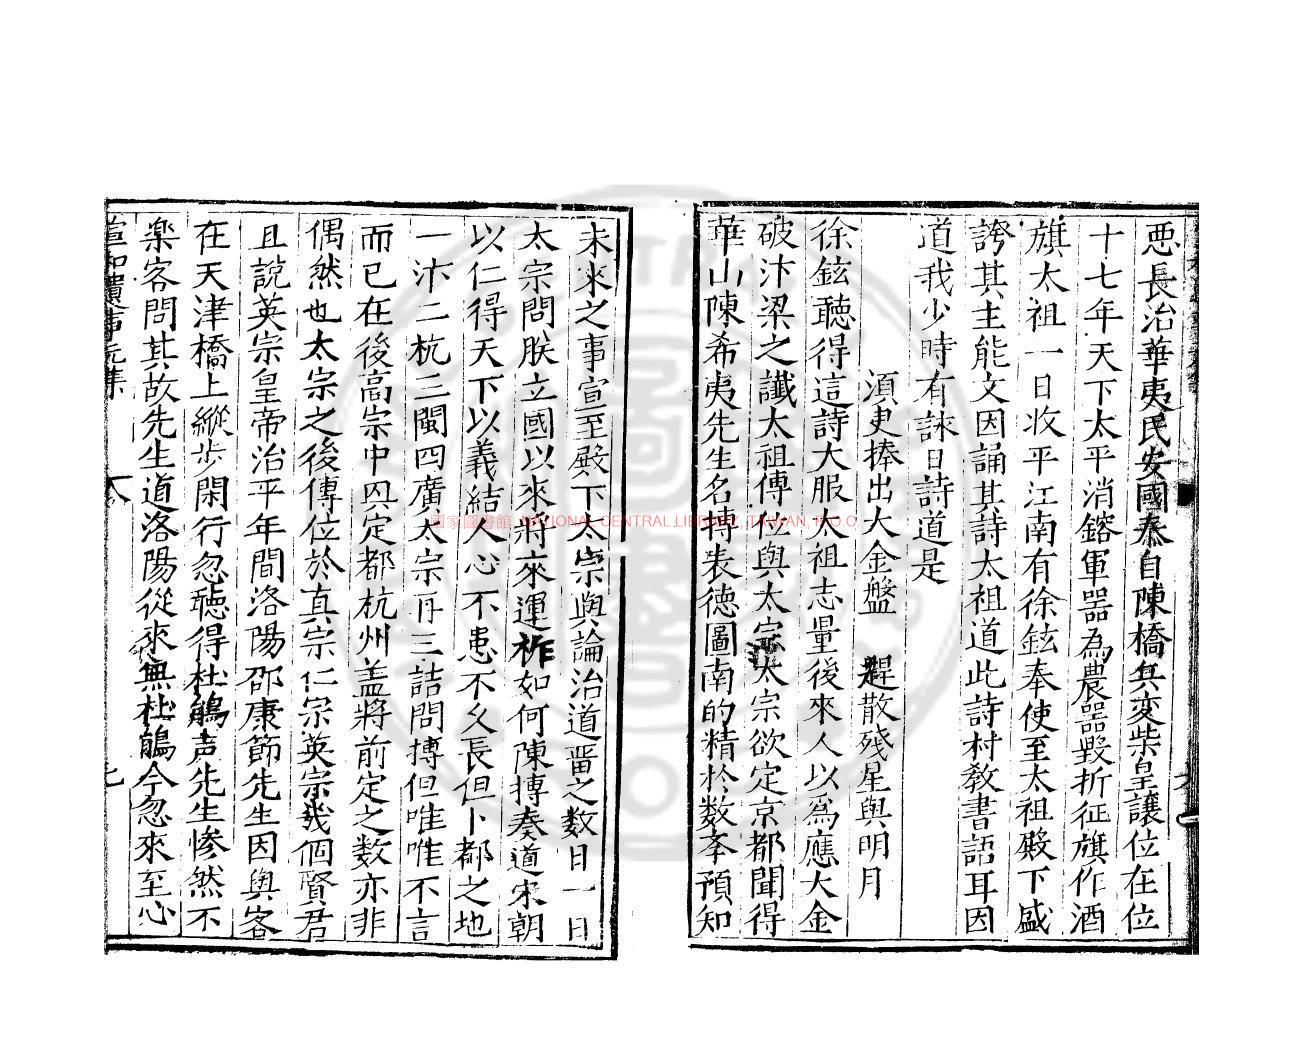 悪長治華夷民安國泰自陳橋兵变柴皇讓位在位
十七年天下太平消鎔軍器為農器毀折征旗作酒
旗太祖一日收平江南有徐鉉奉使至太祖殿下盛
誇其主能文因誦其詩太祖道此詩村教書語耳因
道我少時有詠日詩道是
須臾捧出大金盤　趕散殘星與明月
徐鉉聽得這詩大服太祖志量後來人以為應大金
破汴梁之讖太祖傳位與太宗太宗欲定京都聞得
華山陳希夷先生名摶表德圖南的精於数李預知
未來之事宣至殿下太宗與論治道畱之数日一日
太宗問朕立國以來將來運祚如何陳摶奏道宋朝
以仁得天下以義結人心不患不久長但卜都之地
一汴二杭三閩四廣太宗再三詰問摶但唯唯不言
而已在後高宗中興定都杭州盖將前定之数亦非
偶然也太宗之後傳位於真宗仁宗英宗我個賢君
且説英宗皇帝治平年間洛陽邵康節先生因與客
在天津橋上縱步閑行忽聽得杜鵑声先生惨然不
楽客問其故先生道洛陽從來無杜鵑今忽來至必
宣和遺事元集
國家圖書館 NATIONAL CENTRAL LIBRARY, TAIWAN, R.O.C